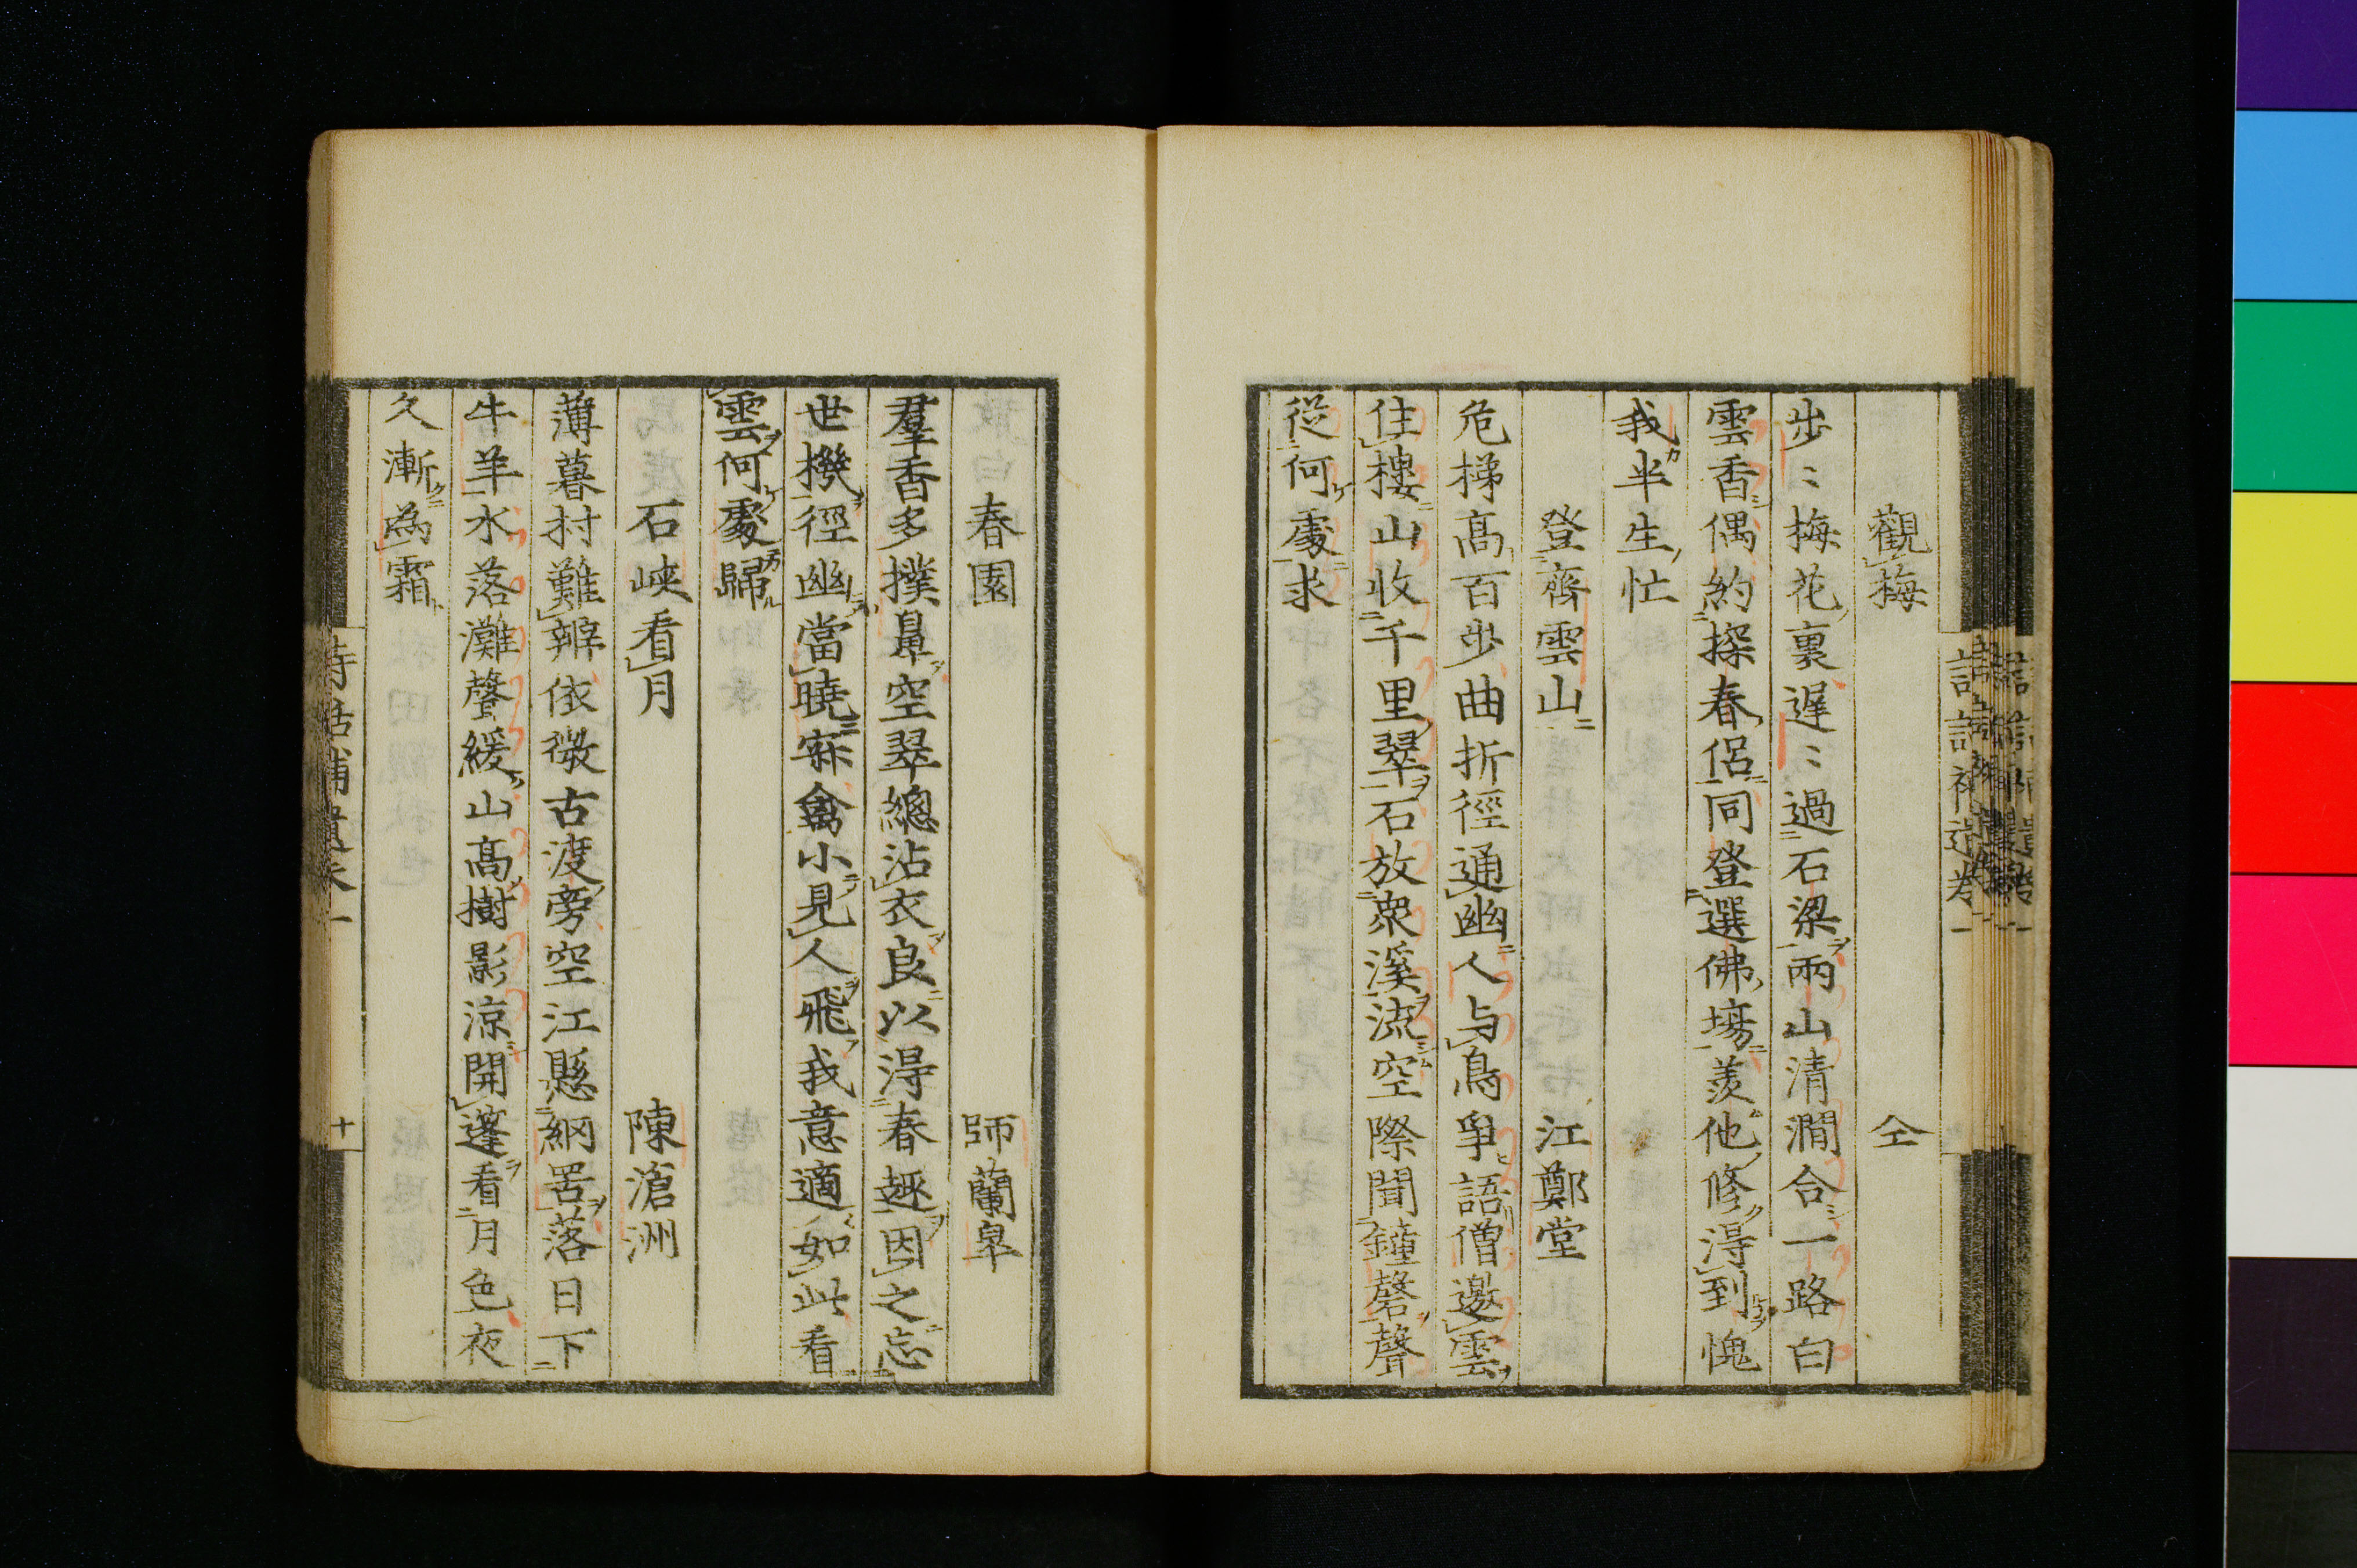 觀梅 仝
步〻梅花裏遲〻過石梁兩山清澗合一路白
雲香偶約探春侶同登選佛場羨他修得到愧
我半生忙
登齊雲山 江鄭堂
危梯高百步曲折徑通幽人与鳥爭語僧邀雲
住樓山收千里翠石放衆溪流空際聞鐘磬聲
從何處求
春園 師蘭皐
羣香多撲鼻空翠總沾衣良以得春趣因之忘
世機徑幽當曉寐禽小見人飛我意適如此看
雲何處歸
石峽看月 陳滄洲
薄暮村難辨依微古渡旁空江懸網罟落日下
牛羊水落灘聲緩山高樹影涼開蓬看月色夜
久漸為霜
詩話補遺卷一 十